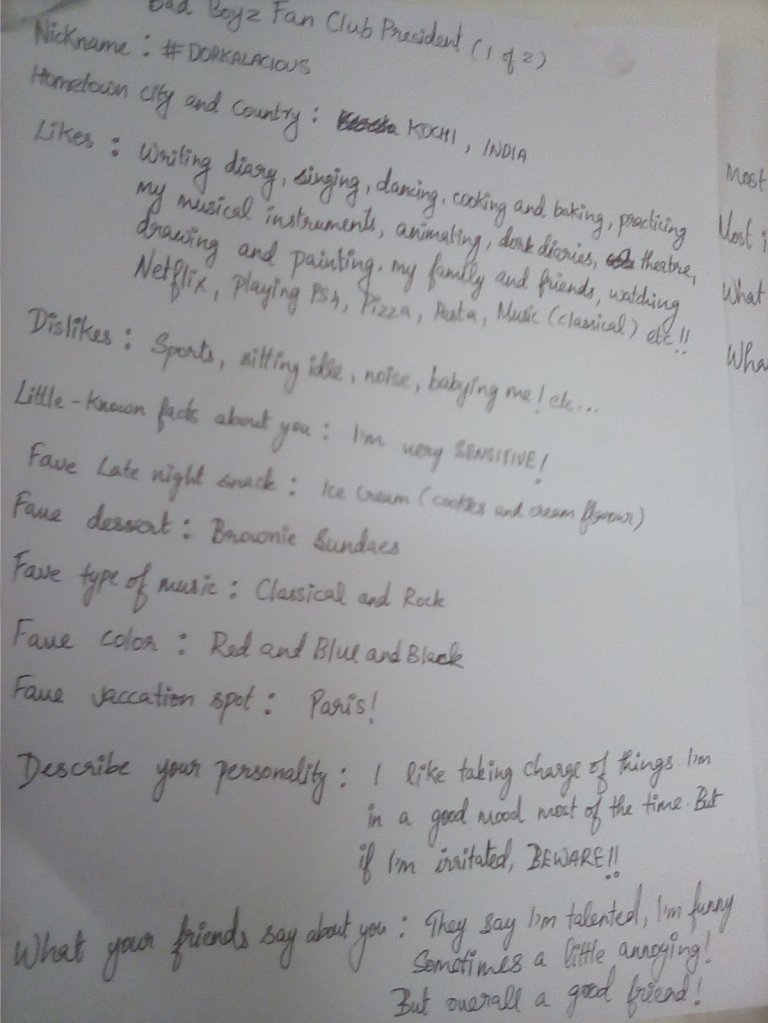 Bad Boyz Fan Club President (1 of 2)
Nickname : # DORKALACIOUS
Hometown city and Country : KOCHI, INDIA
Likes : Writing diary, singing, dancing, cooking and baking, practicing
my musical instruments, animating, dork diaries, theatre,
drawing and painting, my family and friends, watching
Netflix, playing PS4, Pizza, Pasta, Music (classical) etc!!
Dislikes : Sports, sitting idle, noise, babying me! etc...
Little-Known facts about you : I'm very SENSITIVE!
Fave Late night snack : Ice Cream (cookies and cream flavour)
Fave dessert : Brownie Sundaes
Fave type of music : Classical and Rock
Fave color : Red and Blue and Black
Fave vaccation spot : Paris!
Describe your personality : I like taking charge of things. I'm
in a good mood most of the time. But
if I'm irritated, BEWARE!!
What your friends say about you : They say I'm talented, I'm funny
Sometimes a little annoying!
But overall a good friend!
Most
Most i
What
Wha